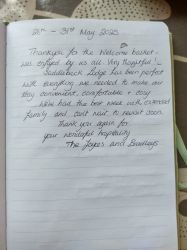 21st - 31st May 2025
Thankyou for the Welcome basket -
was enjoyed by us all. Very thoughtful!
Saddleback Lodge has been perfect
with everything we needed to make our
stay convenient, comfortable + cosy.
We've had the best week with extended
family and can't wait to revisit soon.
Thank you again for
your wonderful hospitality
The Joyces and